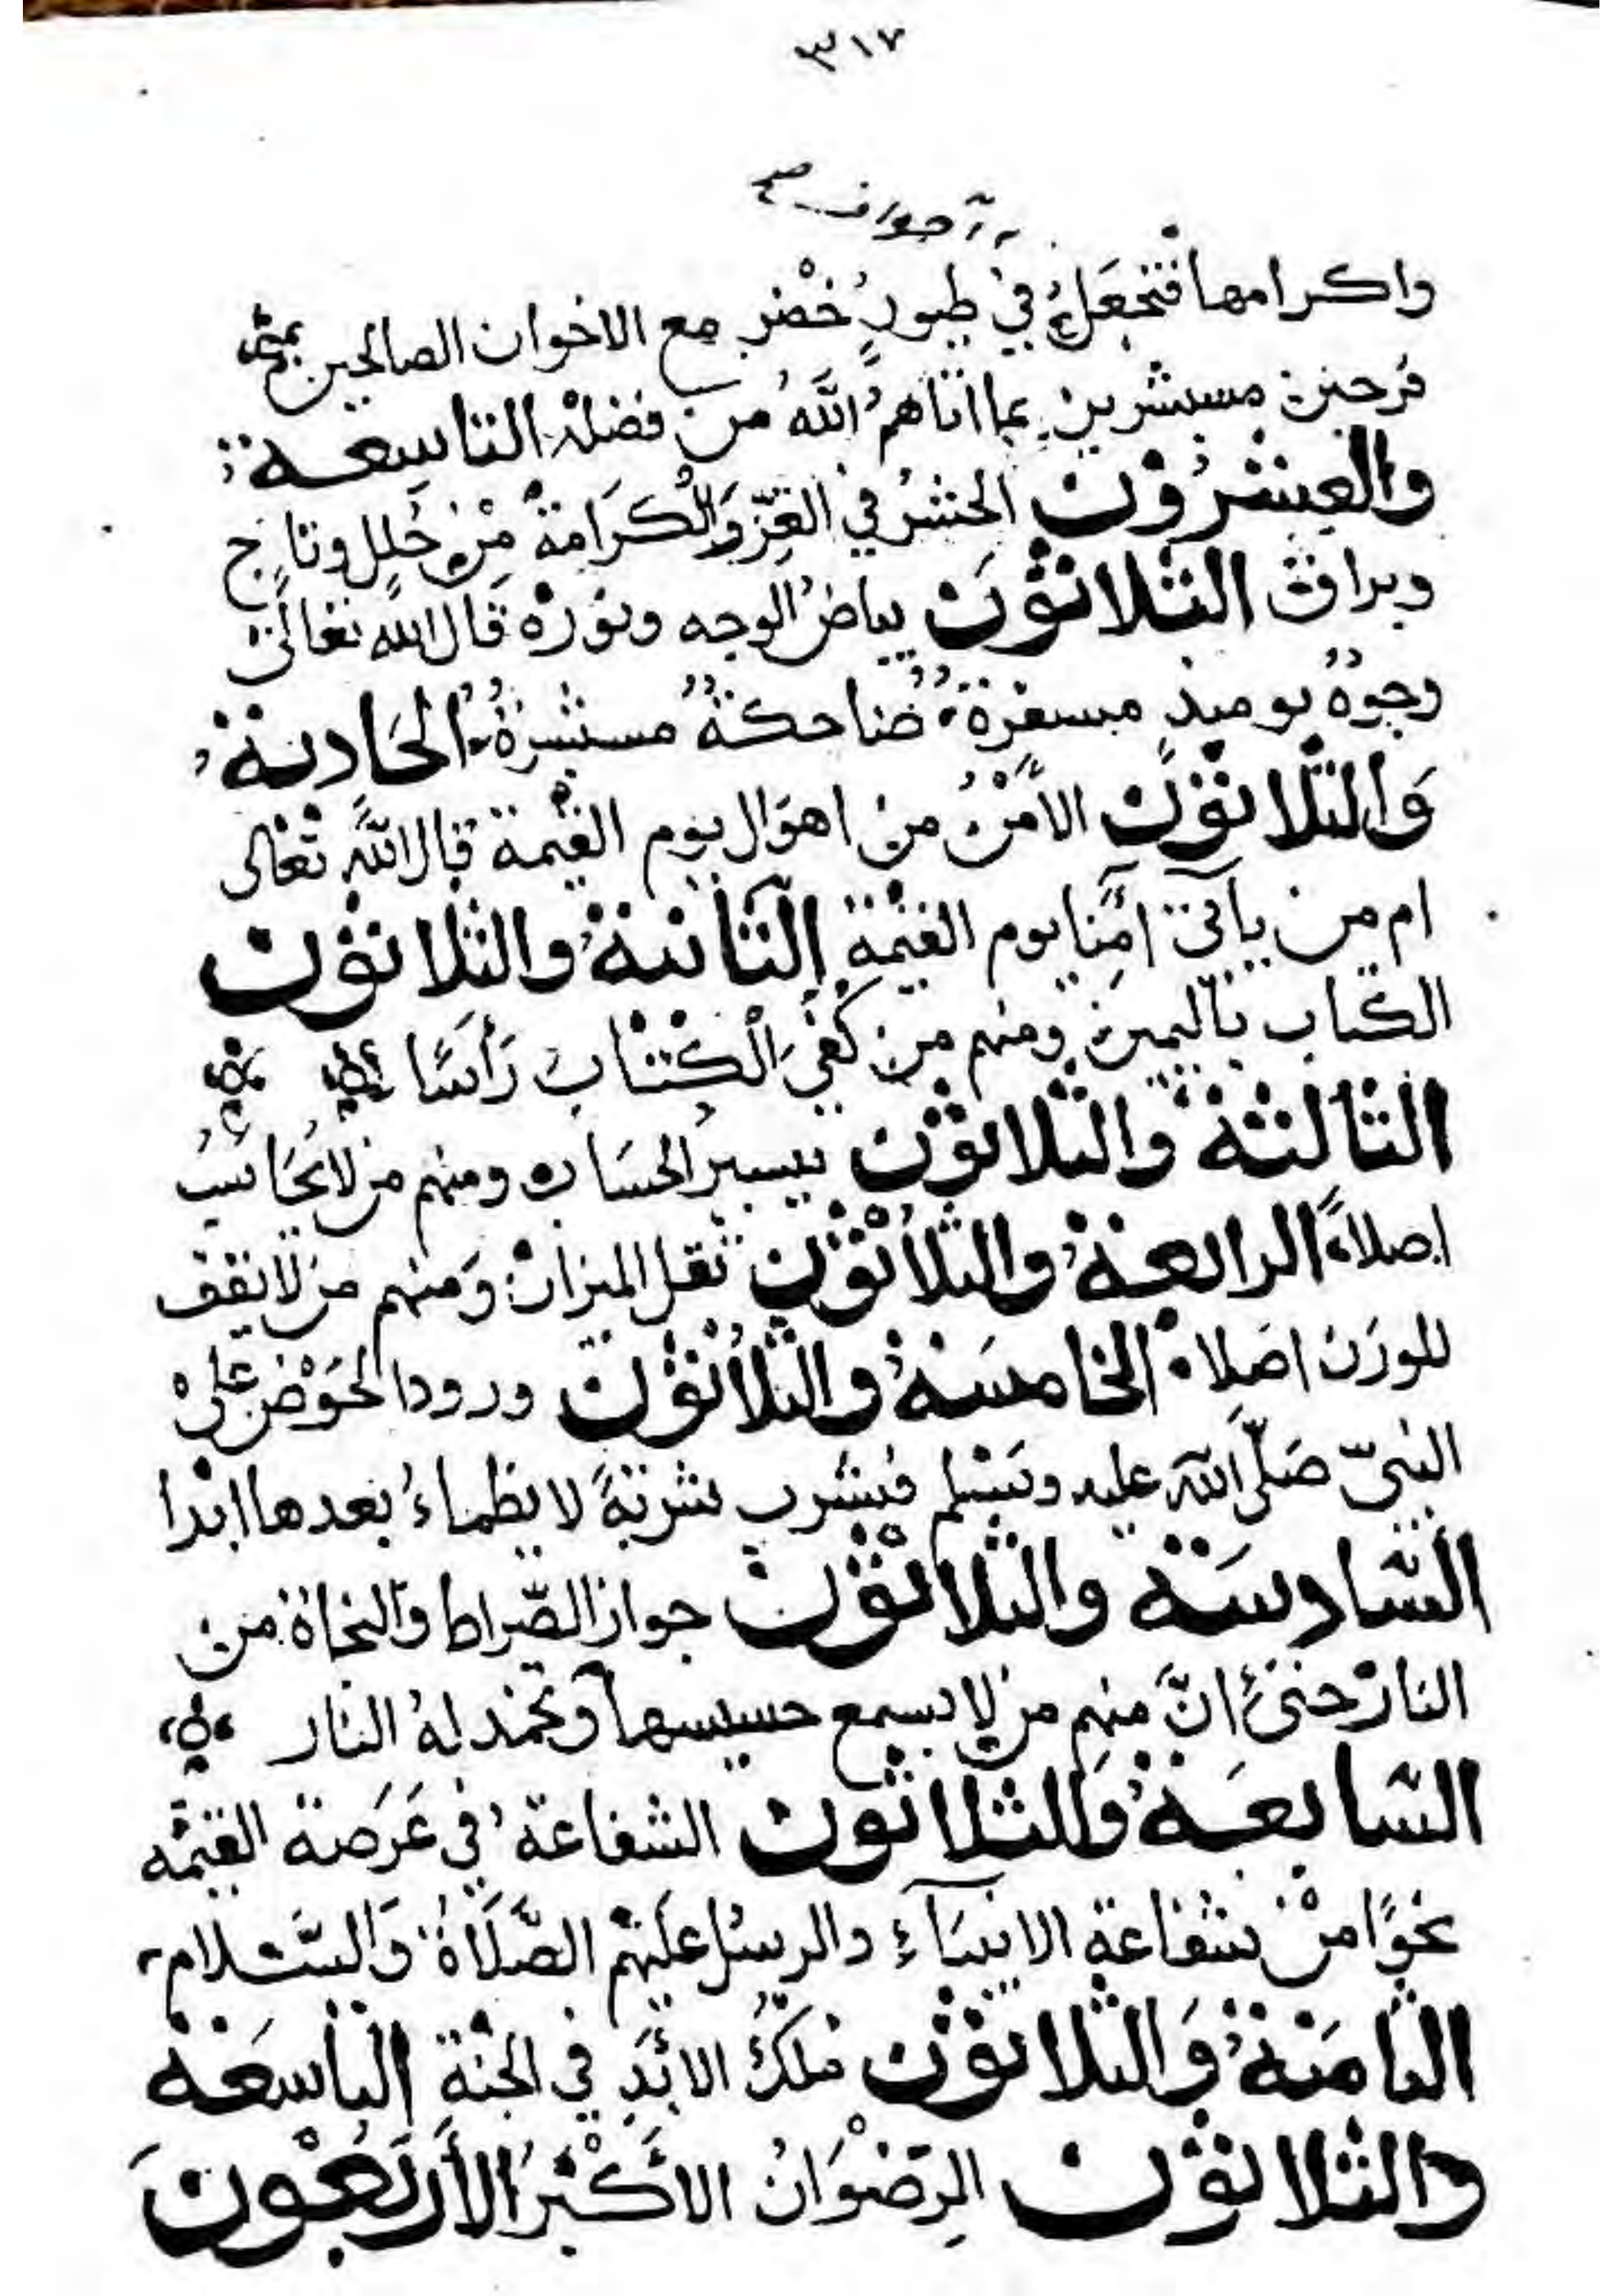 ٣١٧
اجواف صح
واكرامها فتجعل في طيور خضر مع الاخوان الصالحين
فرحين مستبشرين بما اتاهم الله من فضله التاسعة
والعشرون الحشر في العز والكرامة من حلل وتاج
وبراق الثلاثون بياض الوجه ونوره قال الله تعالى
وجوه يوميذ مسفرة ضاحكة مستبشرة الحادية
والثلاثون الامن من اهوال يوم القيمة قال الله تعالى
ام من ياتي آمنا يوم القيمة الثانية والثلاثون
الكتاب باليمين ومنهم من كفي الكتاب رأسا
الثالثة والثلاثون تيسير الحساب ومنهم من لا يحاسب
اصلا الرابعة والثلاثون ثقل الميزان ومنهم من لا يقف
للوزن اصلا الخامسة والثلاثون ورود الحوض على
النبيّ صلّى الله عليه وسلم فيشرب شربةً لا يظماء بعدها ابدا
السادسة والثلاثون جواز الصّراط والنجاة من
النار حتى انّ منهم من لا يسمع حسيسها وتخمد له النار
السابعة والثلاثون الشفاعة في عرصة القيمه
نحوًا من شفاعة الانبيآء والرسل عليهم الصّلاة والسّلام
الثامنة والثلاثون ملك الابد في الجنة التاسعة
والثلاثون الرضوان الاكبر الأربعون